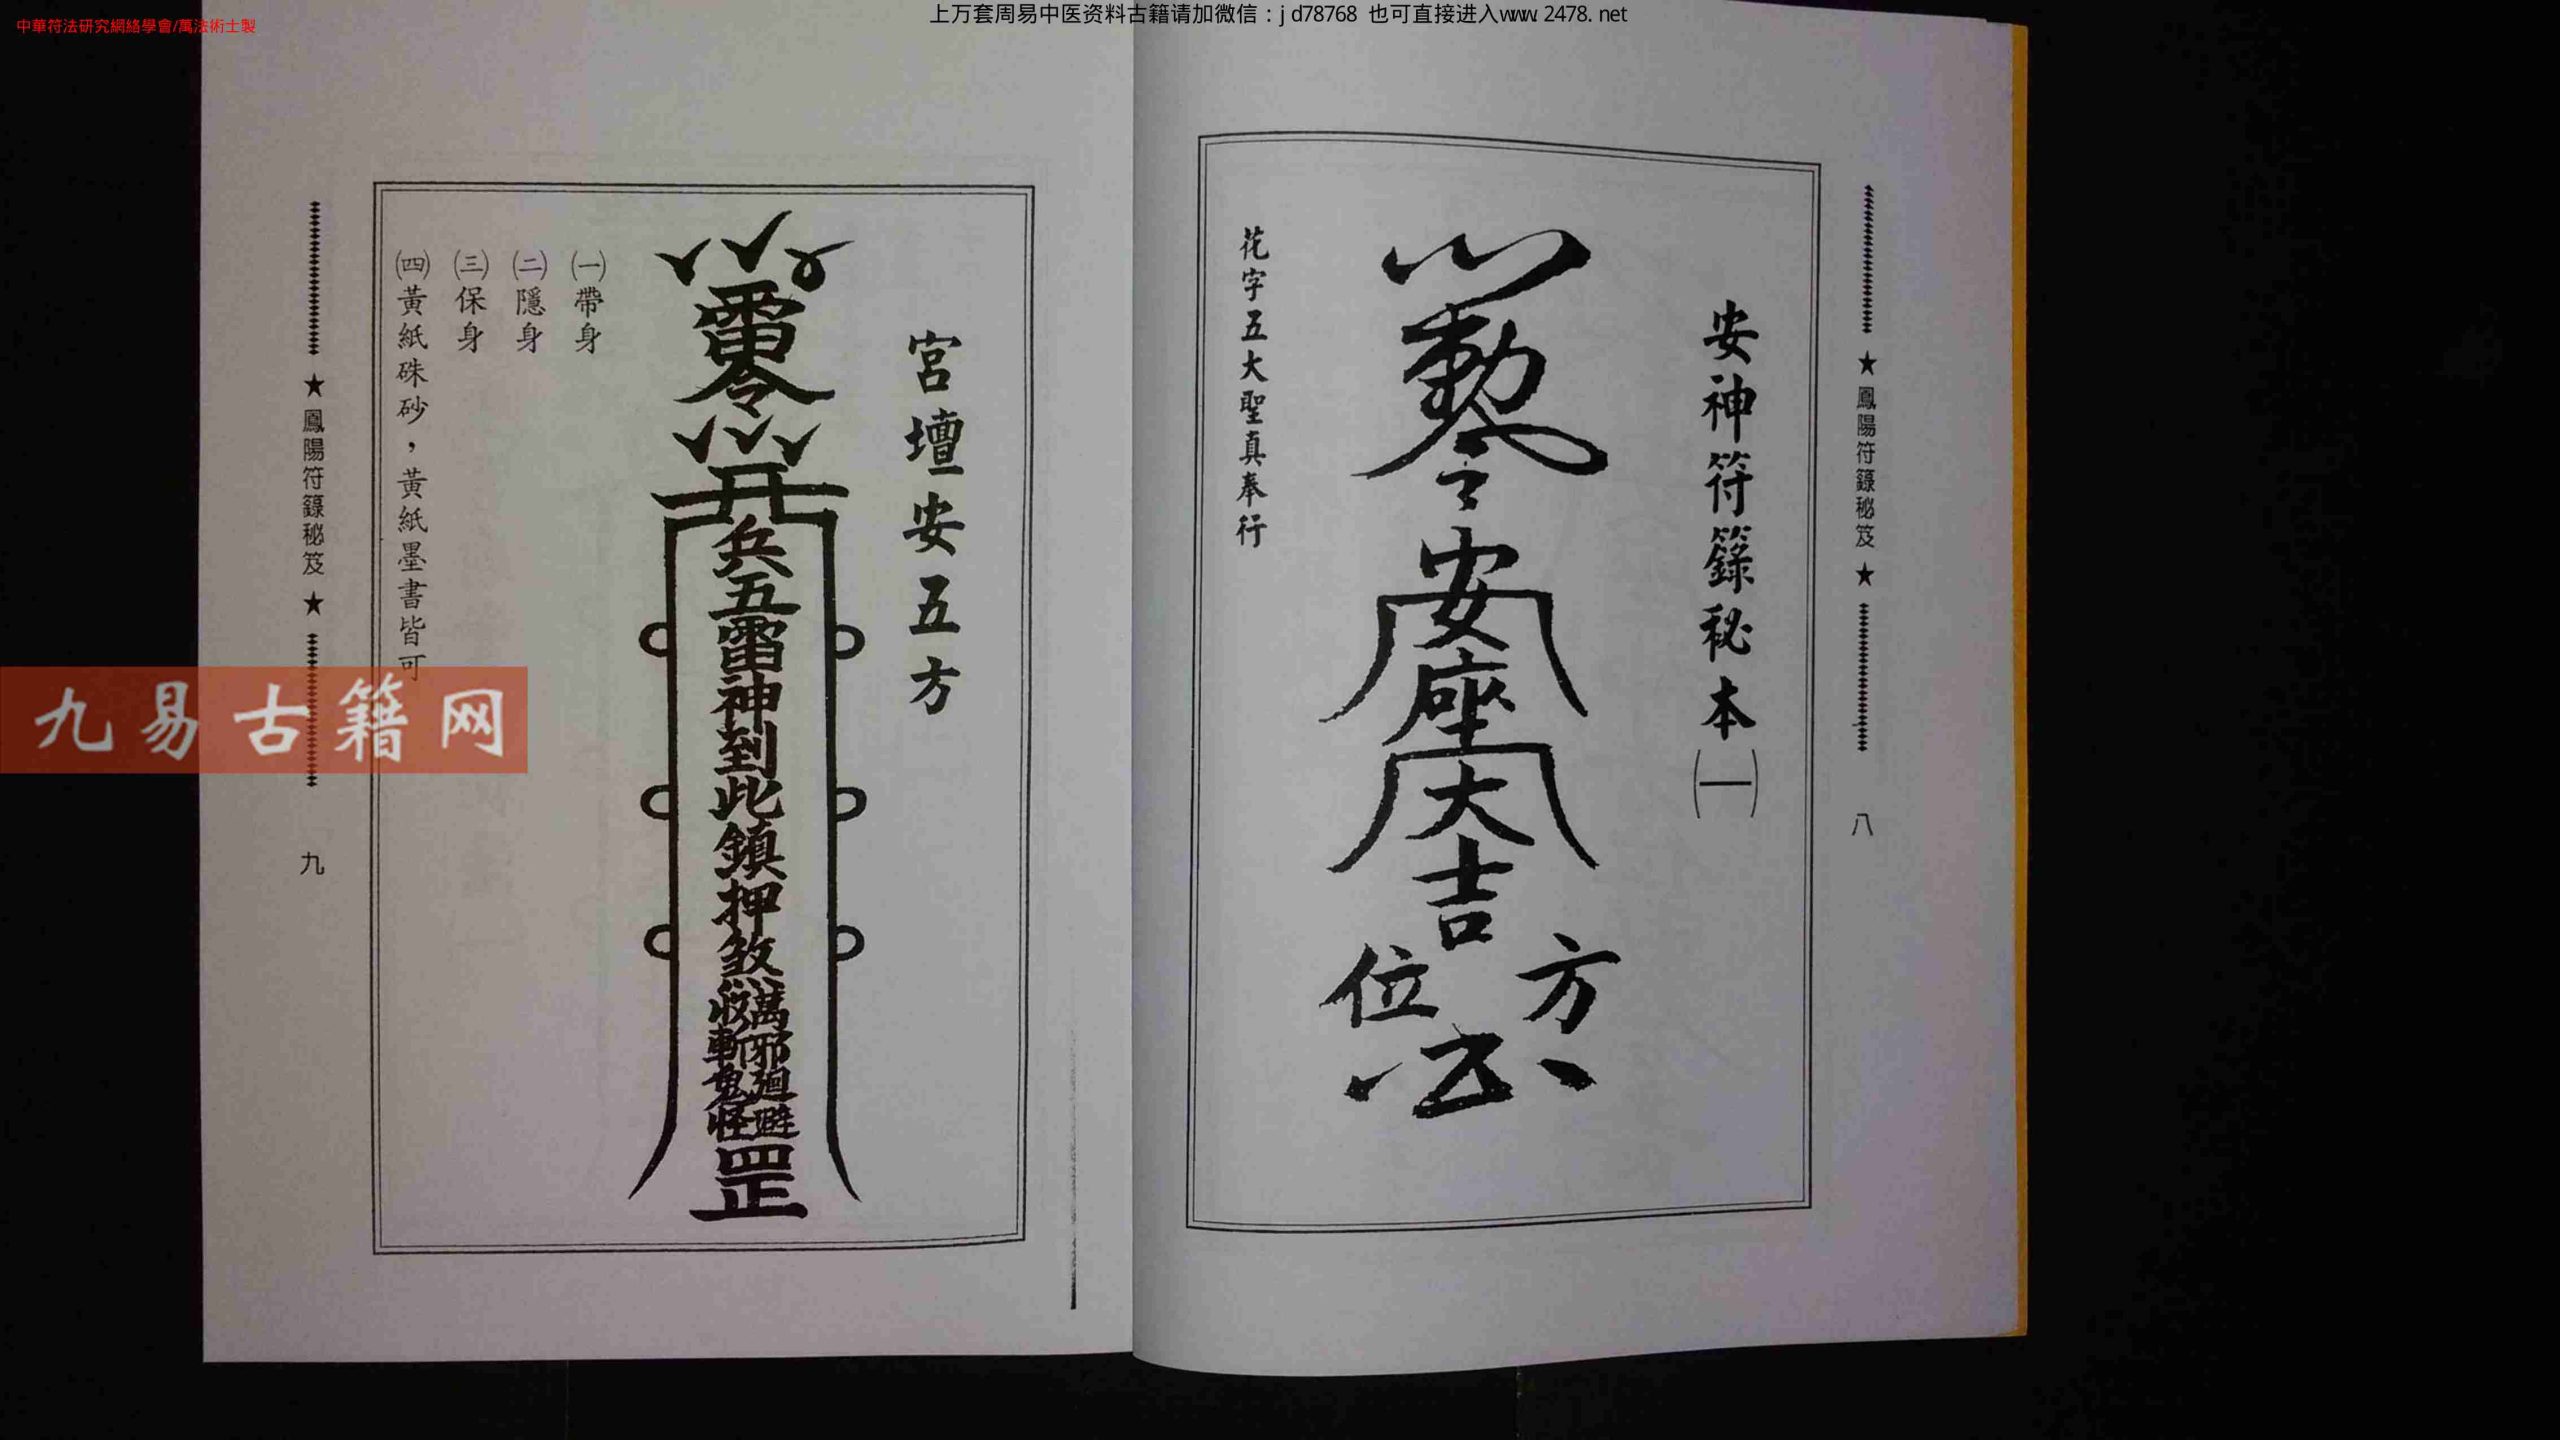 上万套周易中医资料古籍请加微信：jd78768 也可直接进入www.2478.net
中華符法研究網絡學會/萬法術士製
★鳳陽符籙秘笈★
八
安神符籙秘本(一)
勅令
安座大吉
方位
花字五大聖真奉行
宮壇安五方
雷令
兵五雷神到此鎮押煞
萬邪廻避
收斬鬼怪
罡
㈠帶身
㈡隱身
㈢保身
㈣黃紙硃砂，黃紙墨書皆可
★鳳陽符籙秘笈★
九
九易古籍网